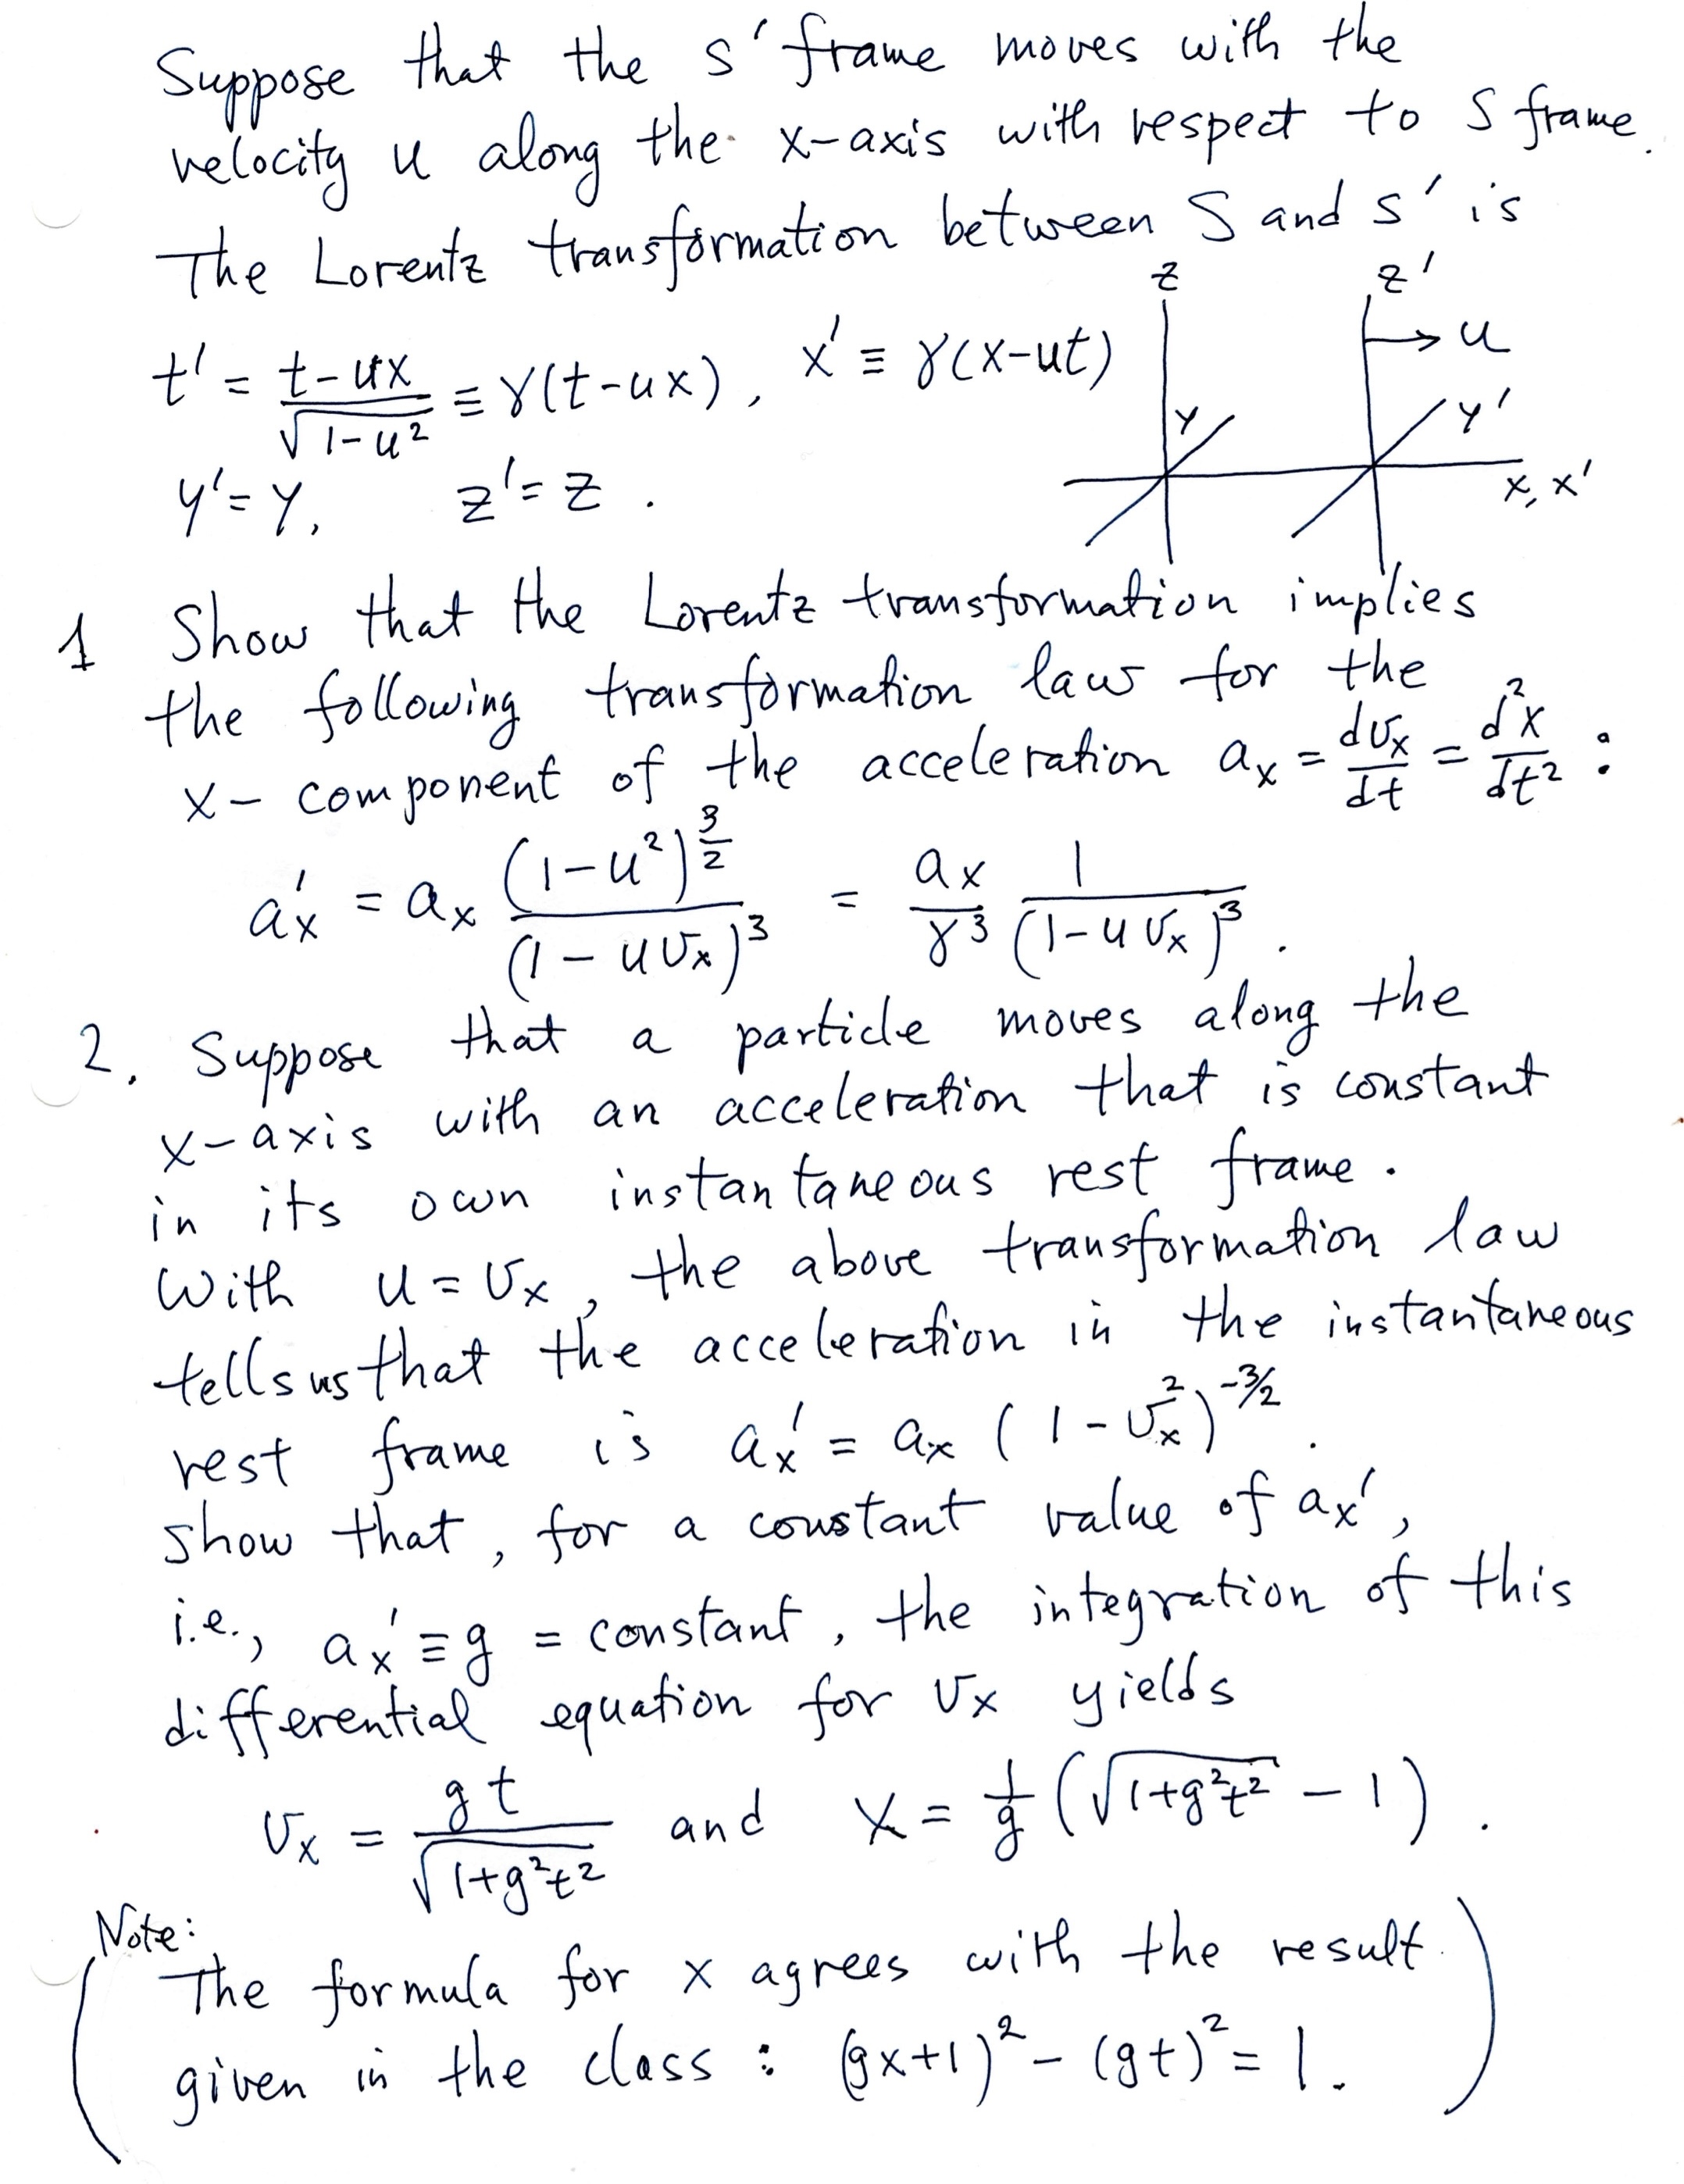 Suppose that the s' frame moves with the
velocity u along the x-axis with respect to S frame.
The Lorentz transformation between S and s' is
z z'
t' = (t-ux)/√(1-u²) ≡ γ(t-ux), x' ≡ γ(x-ut)
u
y y'
y'=y, z'=z.
x, x'
1 Show that the Lorentz transformation implies
the following transformation law for the
x-component of the acceleration aₓ = dvₓ/dt = d²x/dt² :
aₓ' = aₓ (1-u²)^(3/2)/(1-uvₓ)³ = aₓ/γ³ 1/(1-uvₓ)³.
2. Suppose that a particle moves along the
x-axis with an acceleration that is constant
in its own instantaneous rest frame.
With u = vₓ, the above transformation law
tells us that the acceleration in the instantaneous
rest frame is aₓ' = aₓ (1-vₓ²)^(-3/2).
show that, for a constant value of aₓ',
i.e., aₓ' ≡ g = constant, the integration of this
differential equation for vₓ yields
vₓ = gt/√(1+g²t²) and x = 1/g (√(1+g²t²) - 1).
Note:
The formula for x agrees with the result
given in the class : (gx+1)² - (gt)² = 1.